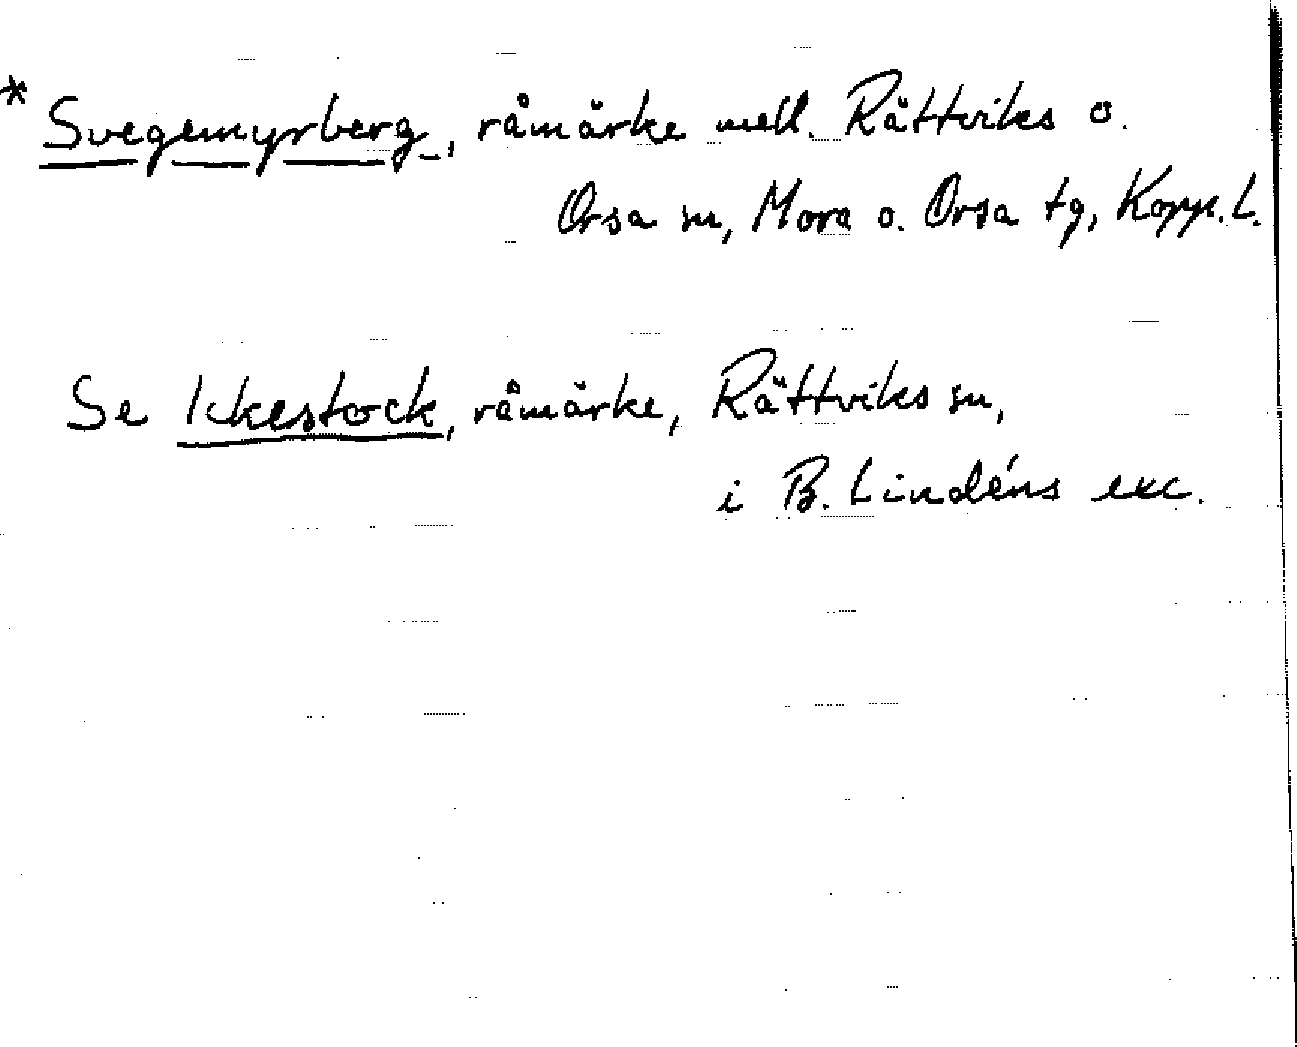 * Svegemyrberg, råmärke mell. Rättviks o.
Orsa sn, Mora o. Orsa tg, Kopp. L.
Se Ickestock, råmärke, Rättviks sn,
i B. Lindéns exc.